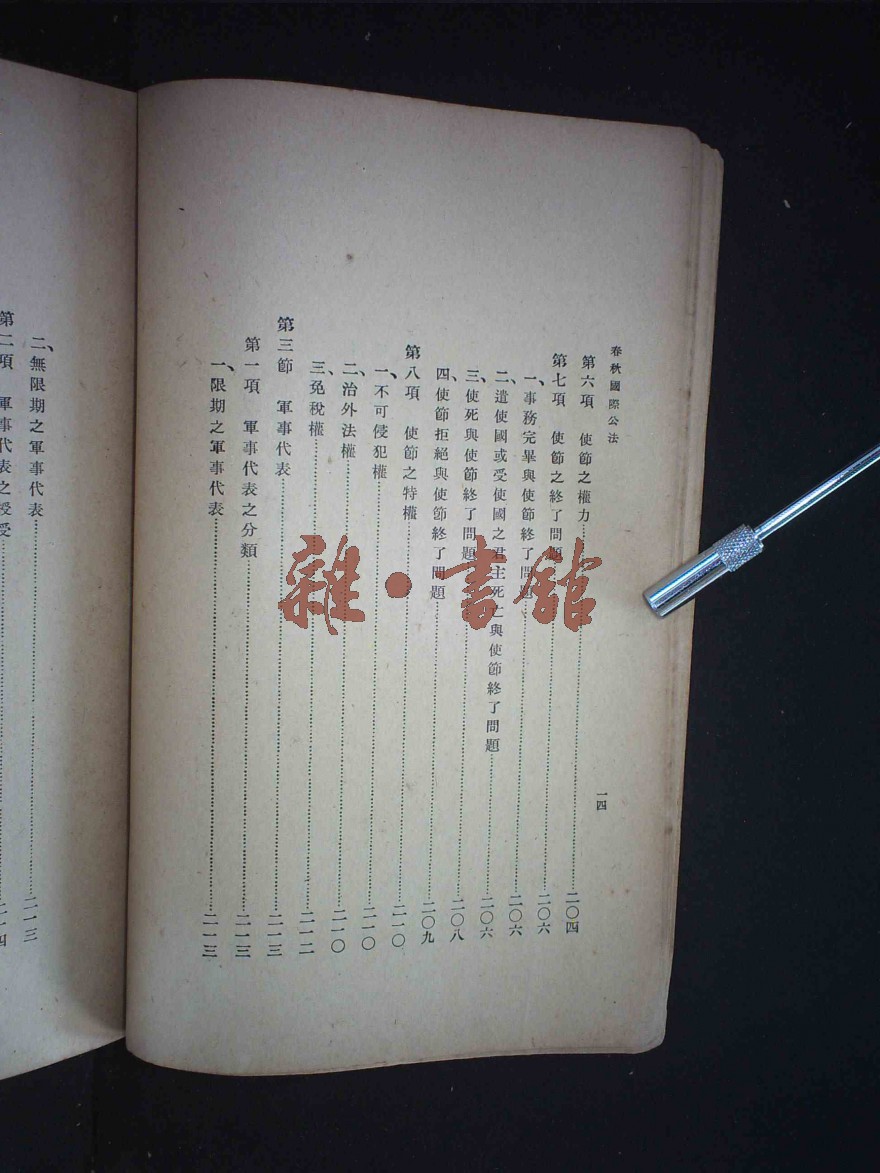 春秋國際公法
一四
第六項　使節之權力……二〇四
第七項　使節之終了問題……二〇六
一、事務完畢與使節終了問題……二〇六
二、遣使國或受使國之君主死亡與使節終了問題……二〇六
三、使死與使節終了問題……二〇八
四、使節拒絕與使節終了問題……二〇九
第八項　使節之特權……二一〇
一、不可侵犯權……二一〇
二、治外法權……二一〇
三、免稅權……二一二
第三節　軍事代表……二一三
第一項　軍事代表之分類……二一三
一、限期之軍事代表……二一三
二、無限期之軍事代表……二一三
第二項　軍事代表之授受……二一四
雜·書館